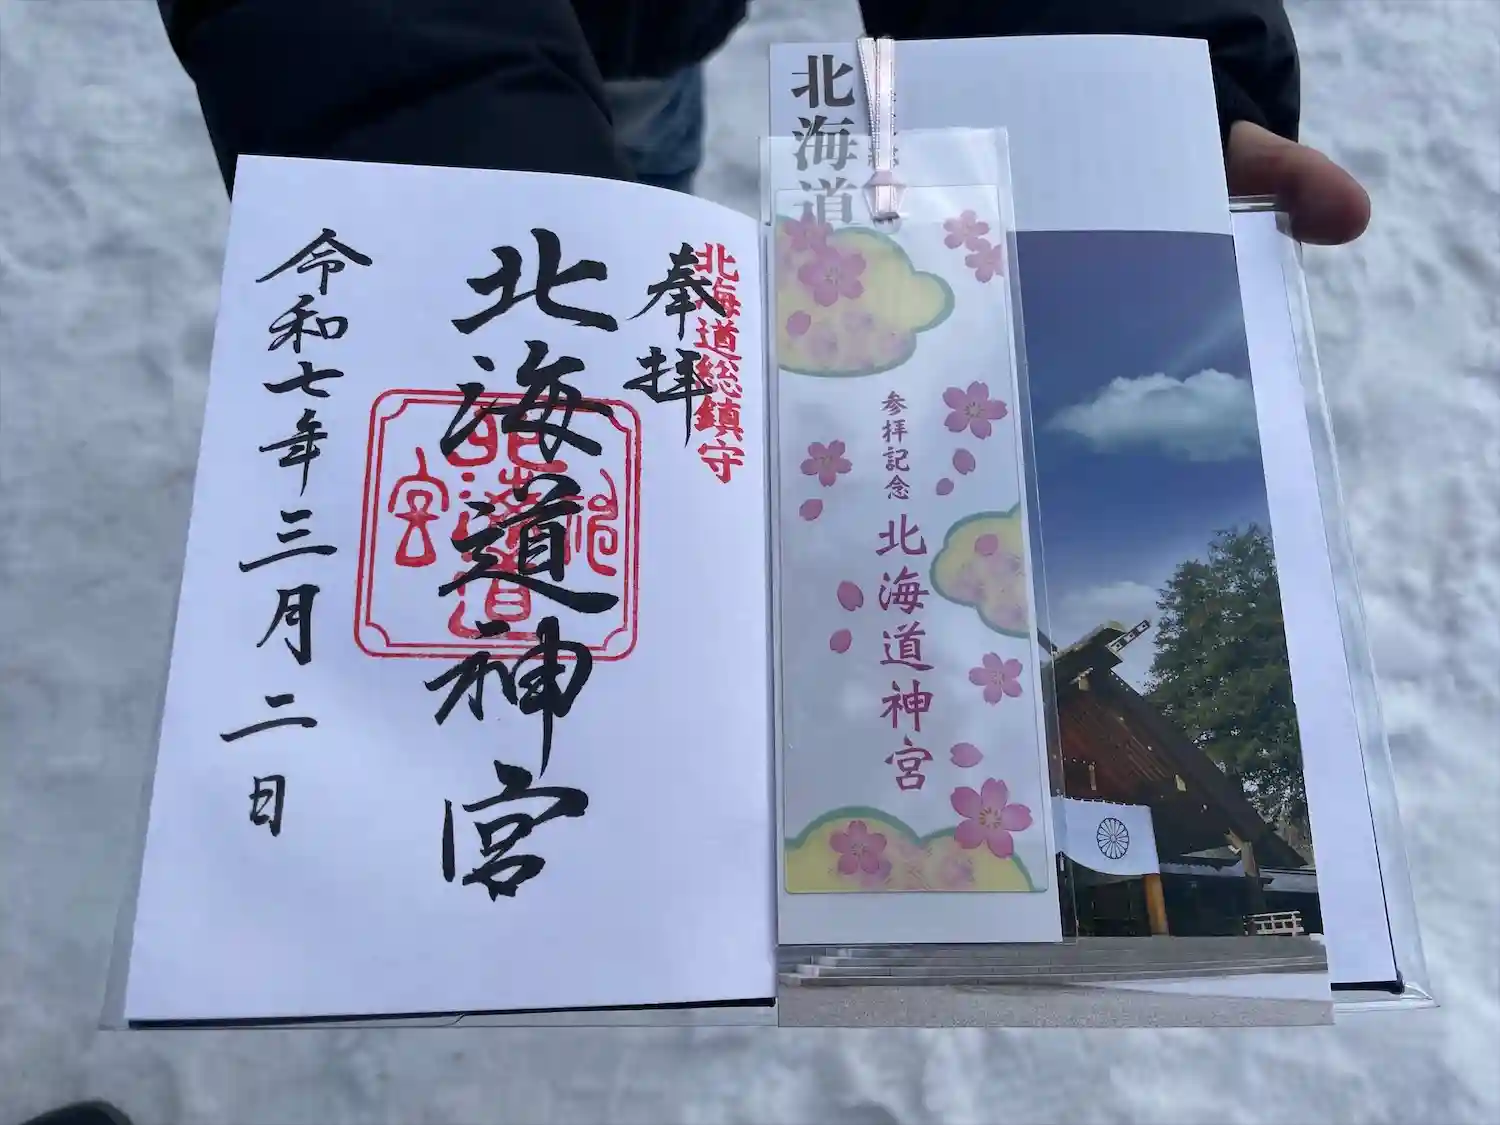 北海道総鎮守
奉拝
北海道神宮
令和七年三月二日
北海道神宮
北海道
参拝記念
北海道神宮